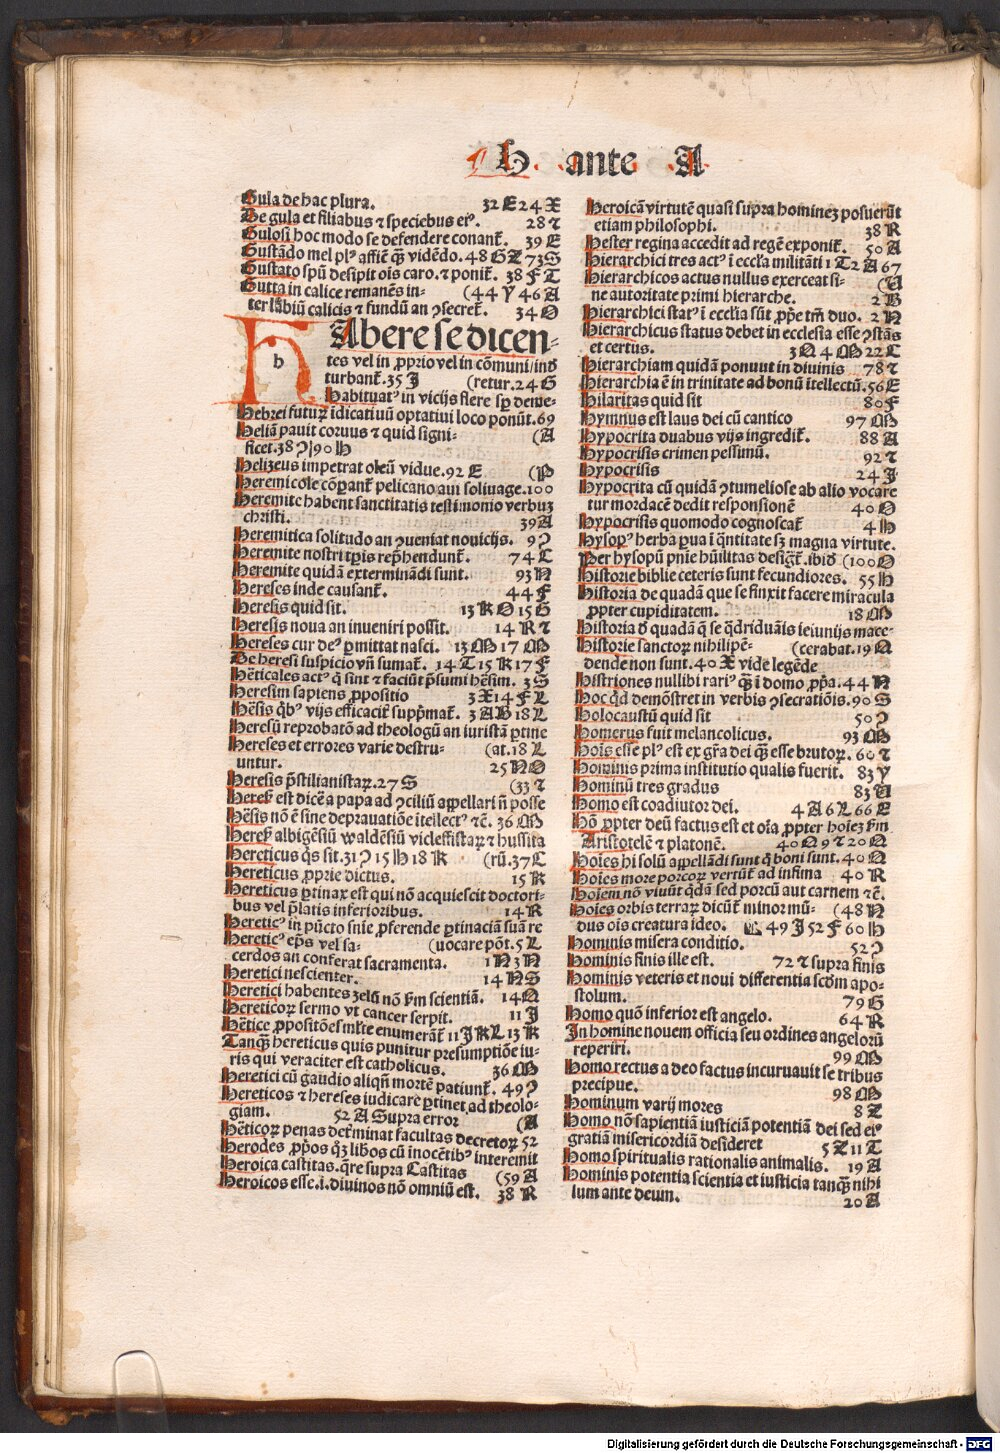 H ante A
Gula de hac plura. 32 E 24 X
De gula et filiabus ⁊ speciebus eiꝰ. 28 ⁊
Gulosi hoc modo se defendere conant̃. 39 E
Gustãdo mel plꝰ affic̃ q̃ȝ vidẽdo. 48 G Z 73 S
Gustato spũ desipit oĩs caro. ⁊ ponit̃. 38 F T
Gutta in calice remanẽs in- (44 Y 46 A
ter labiũ calicis ⁊ fundũ an ꝯsecret̃. 34 O
HAbere se dicen-
h
tes vel in ꝓprio vel in cõmuni / inõ
turbant̃. 35 J (retur. 24 G
Habituatꝰ in vicijs flere sꝑ deme-
Hebrei futuꝝ ĩdicati uũ optatiui loco ponũt. 69
Heliã pauit coruus ⁊ quid signi- (A
ficet. 38 ꝯ 90 H
Helizeus impetrat oleũ vidue. 92 E (P
Heremicole cõꝑant̃ pelicano aui soliuage. 100
Heremite habent sanctitatis testimonio verbuȝ
christi. 39 A
Heremitica solitudo an ꝯueniat nouicijs. 9 ꝯ
Heremite nostri tꝑis rep̃hendunt̃. 74 C
Heremite quidã exterminãdi sunt. 93 N
Hereses inde causant̃. 44 F
Heresis quid sit. 13 K O 15 G
Heresis noua an inueniri possit. 14 R ⁊
Hereses cur deꝰ ꝑmittat nasci. 13 M 17 M
De heresi suspicio vñ sumat̃. 14 T 15 K 17 F
Hẽticales actꝰ q̃ sint ⁊ faciũt p̃sumi hẽsim. 3 S
Heresim sapiens ꝓpositio 3 X 14 F L
Hẽsis q̃bꝰ vijs efficacit̃ supp̃mat̃. 3 A B 18 L
Heresũ reprobatõ ad theologũ an iuristã ꝑtine
Hereses et errores varie destru- (at. 18 L
untur. 25 N O
Heresis p̃stilianistaꝝ. 27 S (33 ⁊
Heres̃ est dicẽa a papa ad ꝯciliũ appellari ñ posse
Hẽsis nõ ẽ sine deprauatiõe itellectꝰ ⁊c̃. 36 M
Heres̃ albigẽsiũ waldẽsiũ vicleffistaꝝ ⁊ hussita
Hereticus q̃s sit. 31 ꝯ 15 H 18 K (rũ. 37 C
Hereticus ꝓprie dictus. 15 K
Hereticus ꝑtinax est qui nõ acquiescit doctori-
bus vel p̃latis inferioribus. 14 R
Hereticꝰ in pũcto snie ꝓferende ꝑtinaciã suã re
Hereticꝰ ep̃s vel sa- (uocare põt. 5 L
cerdos an conferat sacramenta. 1 N 3 N
Heretici nescienter. 14 N S
Heretici habentes zelũ nõ s̃m scientiã. 14 Q
Hereticoꝝ sermo vt cancer serpit. 11 J
Hẽtice ꝓpositões ml̃te enumerãt̃ 11 J K L 13 K
Tanq̃ȝ hereticus quis punitur presumptiõe iu-
ris qui veraciter est catholicus. 36 M
Heretici cũ gaudio aliqñ mortẽ patiunt̃. 49 ꝯ
Hereticos ⁊ hereses iudicare ꝑtinet ad theolo-
giam. 52 A Supra error (A
Hẽticoꝝ penas det̃minat facultas decretoꝝ 52
Herodes ꝓp̃os q̃ȝ lib̃os cũ inocẽtibꝰ interemit
Heroica castitas. q̃re supra Castitas (59 A
Heroicos esse. i. diuinos nõ omniũ est. 38 R
Heroicã virtutẽ quasi supra homineȝ posuerũt
etiam philosophi. 38 R
Hester regina accedit ad regẽ exponit̃. 50 A
Hierarchici tres actꝰ ĩ eccl̃a militãti 1 T 2 A 67
Hierarchicos actus nullus exerceat si- (V
ne autoritate primi hierarche. 2 B
Hierarchici statꝰ ĩ ecclĩa sũt ꝓp̃e tm̃ duo. 2 N
Hierarchicus status debet in ecclesia esse ꝯstãs
et certus. 3 Q 4 M 22 C
Hierarchiam quidã ponunt in diuinis 78 ⁊
Hierarchia ẽ in trinitate ad bonũ itellectũ. 56 E
Hilaritas quid sit 80 F
Hymnus est laus dei cũ cantico 97 M
Hypocrita duabus vijs ingredit̃. 88 A
Hypocrisis crimen pessimũ. 92 ⁊
Hypocrisis 24 J
Hypocrita cũ quidã ꝯtumeliose ab alio vocare
tur mordacẽ dedit responsionẽ 40 O
Hypocrisis quomodo cognoscat̃ 4 H
Hysopꝰ herba ꝑua ĩ q̃ntitate sȝ magna virtute.
Per hysopũ pnie hũilitas desig̃t̃. ibiđ (100 O
Historie biblie ceteris sunt fecundiores. 55 H
Historia de quadã que se finxit facere miracula
ꝓpter cupiditatem. 18 M
Historia đ quadã q̃ se q̃driduãis ieiunijs mace-
Historie sanctoꝝ nihilipẽ- (cerabat. 19 Q
dende non sunt. 40 X vide legẽde
Histriones nullibi rariꝰ q̃ȝ ĩ domo ꝓp̃a. 44 N
Hoc q̃d demõstret in verbis ꝯsecratiõis. 90 S
Holocaustũ quid sit 50 ꝯ
Homerus fuit melancolicus. 93 M
Hoĩs esse plꝰ est ex gr̃a dei q̃ȝ esse brutoꝝ. 60 ⁊
Hominis prima institutio qualis fuerit. 83 Y
Hominũ tres gradus 83 V
Homo est coadiutor dei. 4 A 6 L 66 E
Hõ ꝓpter deũ factus est et oĩa ꝓpter hoĩeȝ s̃m
Aristotelẽ ⁊ platonẽ. 40 Q 9 ⁊ 20 Q
Hoĩes hi solũ appellãdi sunt q̃ boni sunt. 40 Q
Hoĩes more porcoꝝ vertũt̃ ad infima 40 R
Hoĩem nõ viuũt q̃dã sed porcũ aut carnem ⁊c̃.
Hoĩes orbis terraꝝ dicũt̃ minor mũ- (48 N
dus oĩs creatura ideo. C 49 J 52 F 60 H
Hominis misera conditio. 52 ꝯ
Hominis finis ille est. 72 ⁊ supra finis
Hominis veteris et noui differentia scd̃m apo-
stolum. 79 G
Homo quõ inferior est angelo. 64 R
In homine nouem officia seu ordines angelorũ
reperiri. 99 M
Homo rectus a deo factus incuruauit se tribus
precipue. 98 M
Hominum varij mores 8 Z
Homo nõ sapientiã iusticiã potentiã dei sed eiꝰ
gratiã misericordiã desideret 5 Z 11 T
Homo spiritualis rationalis animalis. 19 A
Hominis potentia scientia et iusticia tanq̃ȝ nihi
lum ante deum. 20 A
Digitalisierung gefördert durch die Deutsche Forschungsgemeinschaft - DFG